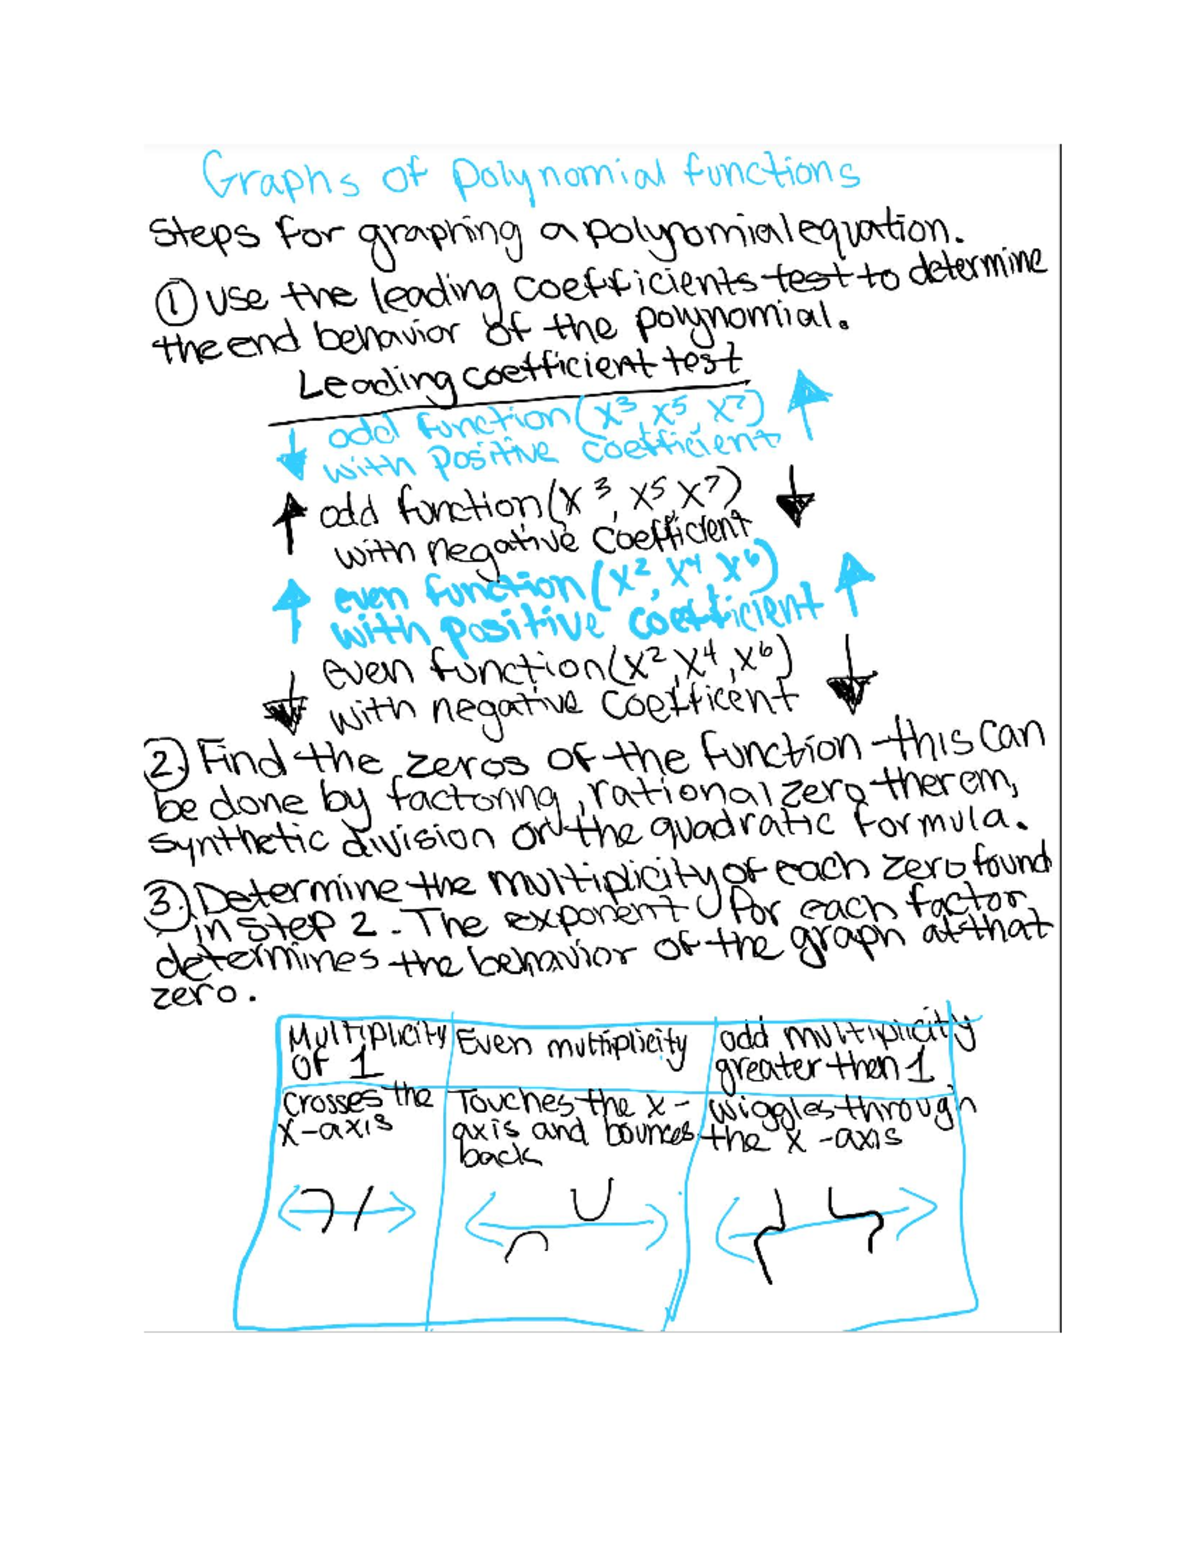 Graphs of polynomial functions
Steps for graphing a polynomial equation.
① use the leading coefficients test to determine
the end behavior of the polynomial.
Leading coefficient test
↓ odd function (x³, x⁵, x⁷) ↑
with positive coefficient
↑ odd function (x³, x⁵ x⁷) ↓
with negative coefficient
↑ even function (x², x⁴ x⁶) ↑
with positive coefficient
↓ even function (x², x⁴, x⁶) ↓
with negative coefficent
② Find the zeros of the function this can
be done by factoring, rational zero therem,
synthetic division or the quadratic formula.
③ Determine the multiplicity of each zero found
in step 2. The exponent for each factor
determines the behavior of the graph at that
zero.
Multiplicity
of 1
Even multiplicity
odd multiplicity
greater then 1
crosses the
x-axis
Touches the x-
axis and bounces
back
wiggles through
the x-axis